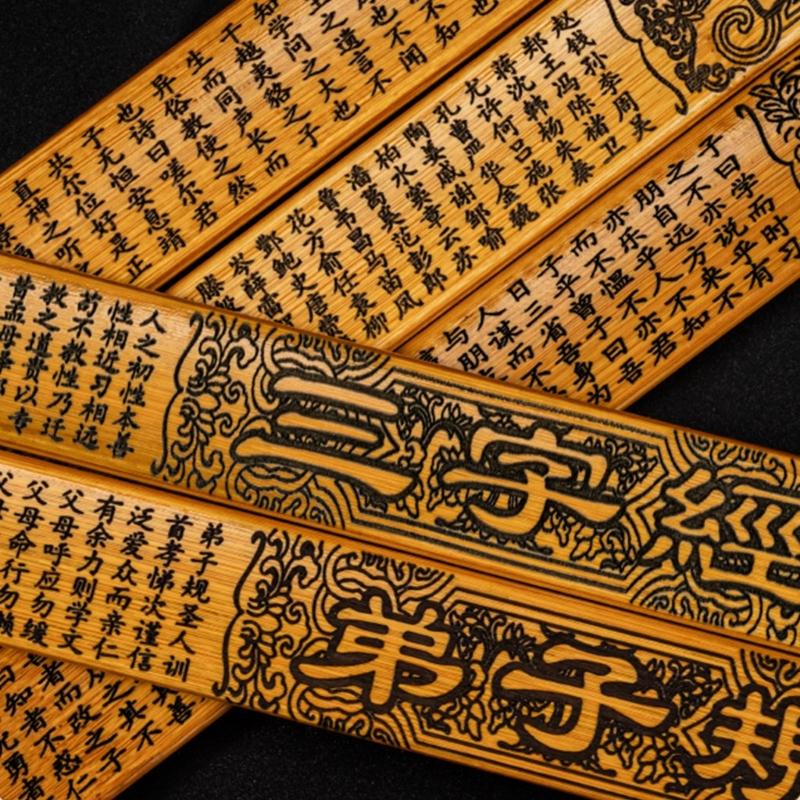 不知
王之遗言不
知学问之大也
干越夷貉之子
生而同声长而
异俗教使之然
也诗曰嗟尔君
子无恒安息靖
共尔位好是正
直神之听
赵钱孙李周吴
郑王冯陈褚卫
蒋沈韩杨朱秦
尤许何吕施张
孔曹严华金魏
陶姜戚谢邹喻
柏水窦章云苏
潘葛奚范彭郎
鲁韦昌马苗凤
花方俞任袁柳
酆鲍史唐
岑薛雷
子曰学而时习
之不亦说乎有
朋自远方来不
亦乐乎人不知
而不愠不亦君
子乎曾子曰吾
日三省吾身为
人谋而不
与朋
三字經
人之初性本善
性相近习相远
苟不教性乃迁
教之道贵以专
昔孟母择
弟子规
弟子规圣人训
首孝悌次谨信
泛爱众而亲仁
有余力则学文
父母呼应勿缓
父母命行勿懒